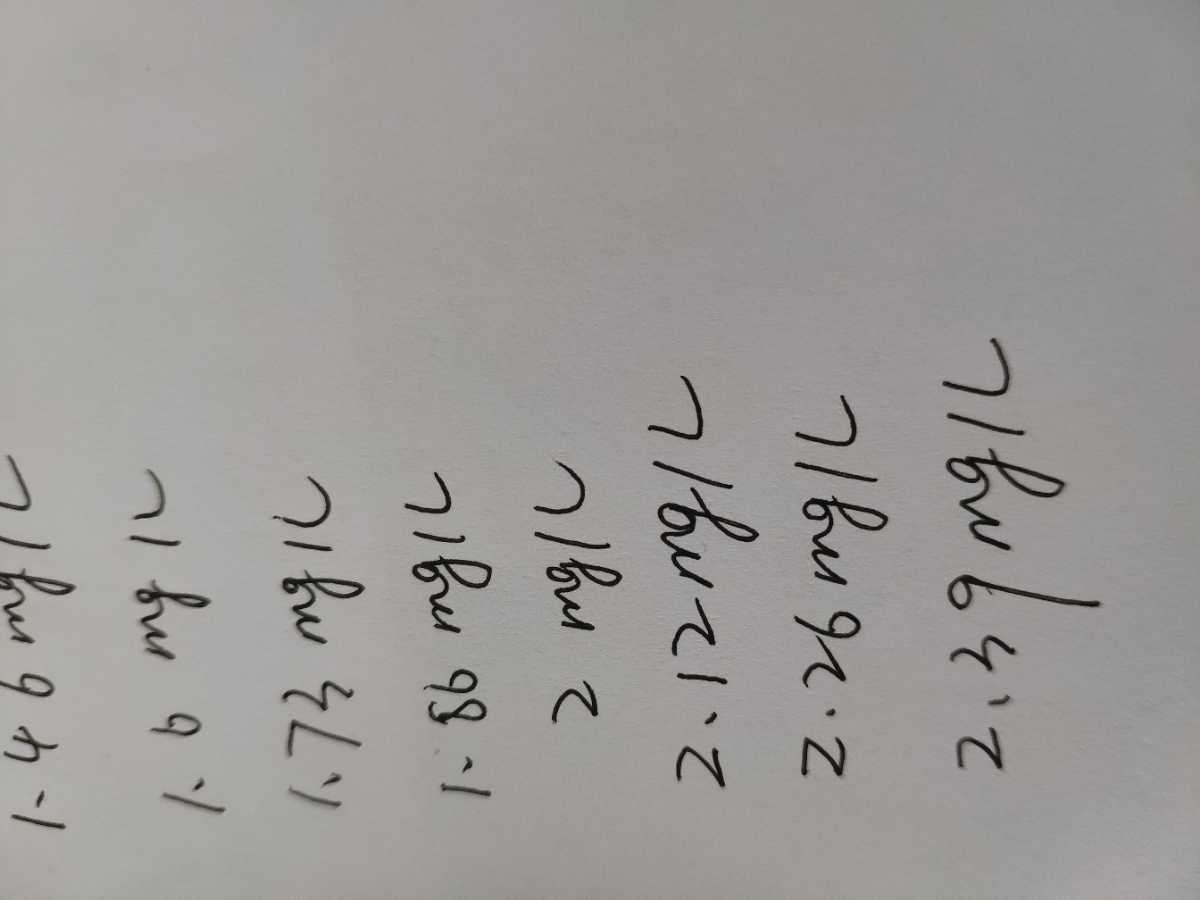 1.49 mg/L
1.6 mg/L
1.73 mg/L
1.89 mg/L
2 mg/L
2.12 mg/L
2.26 mg/L
2.39 mg/L